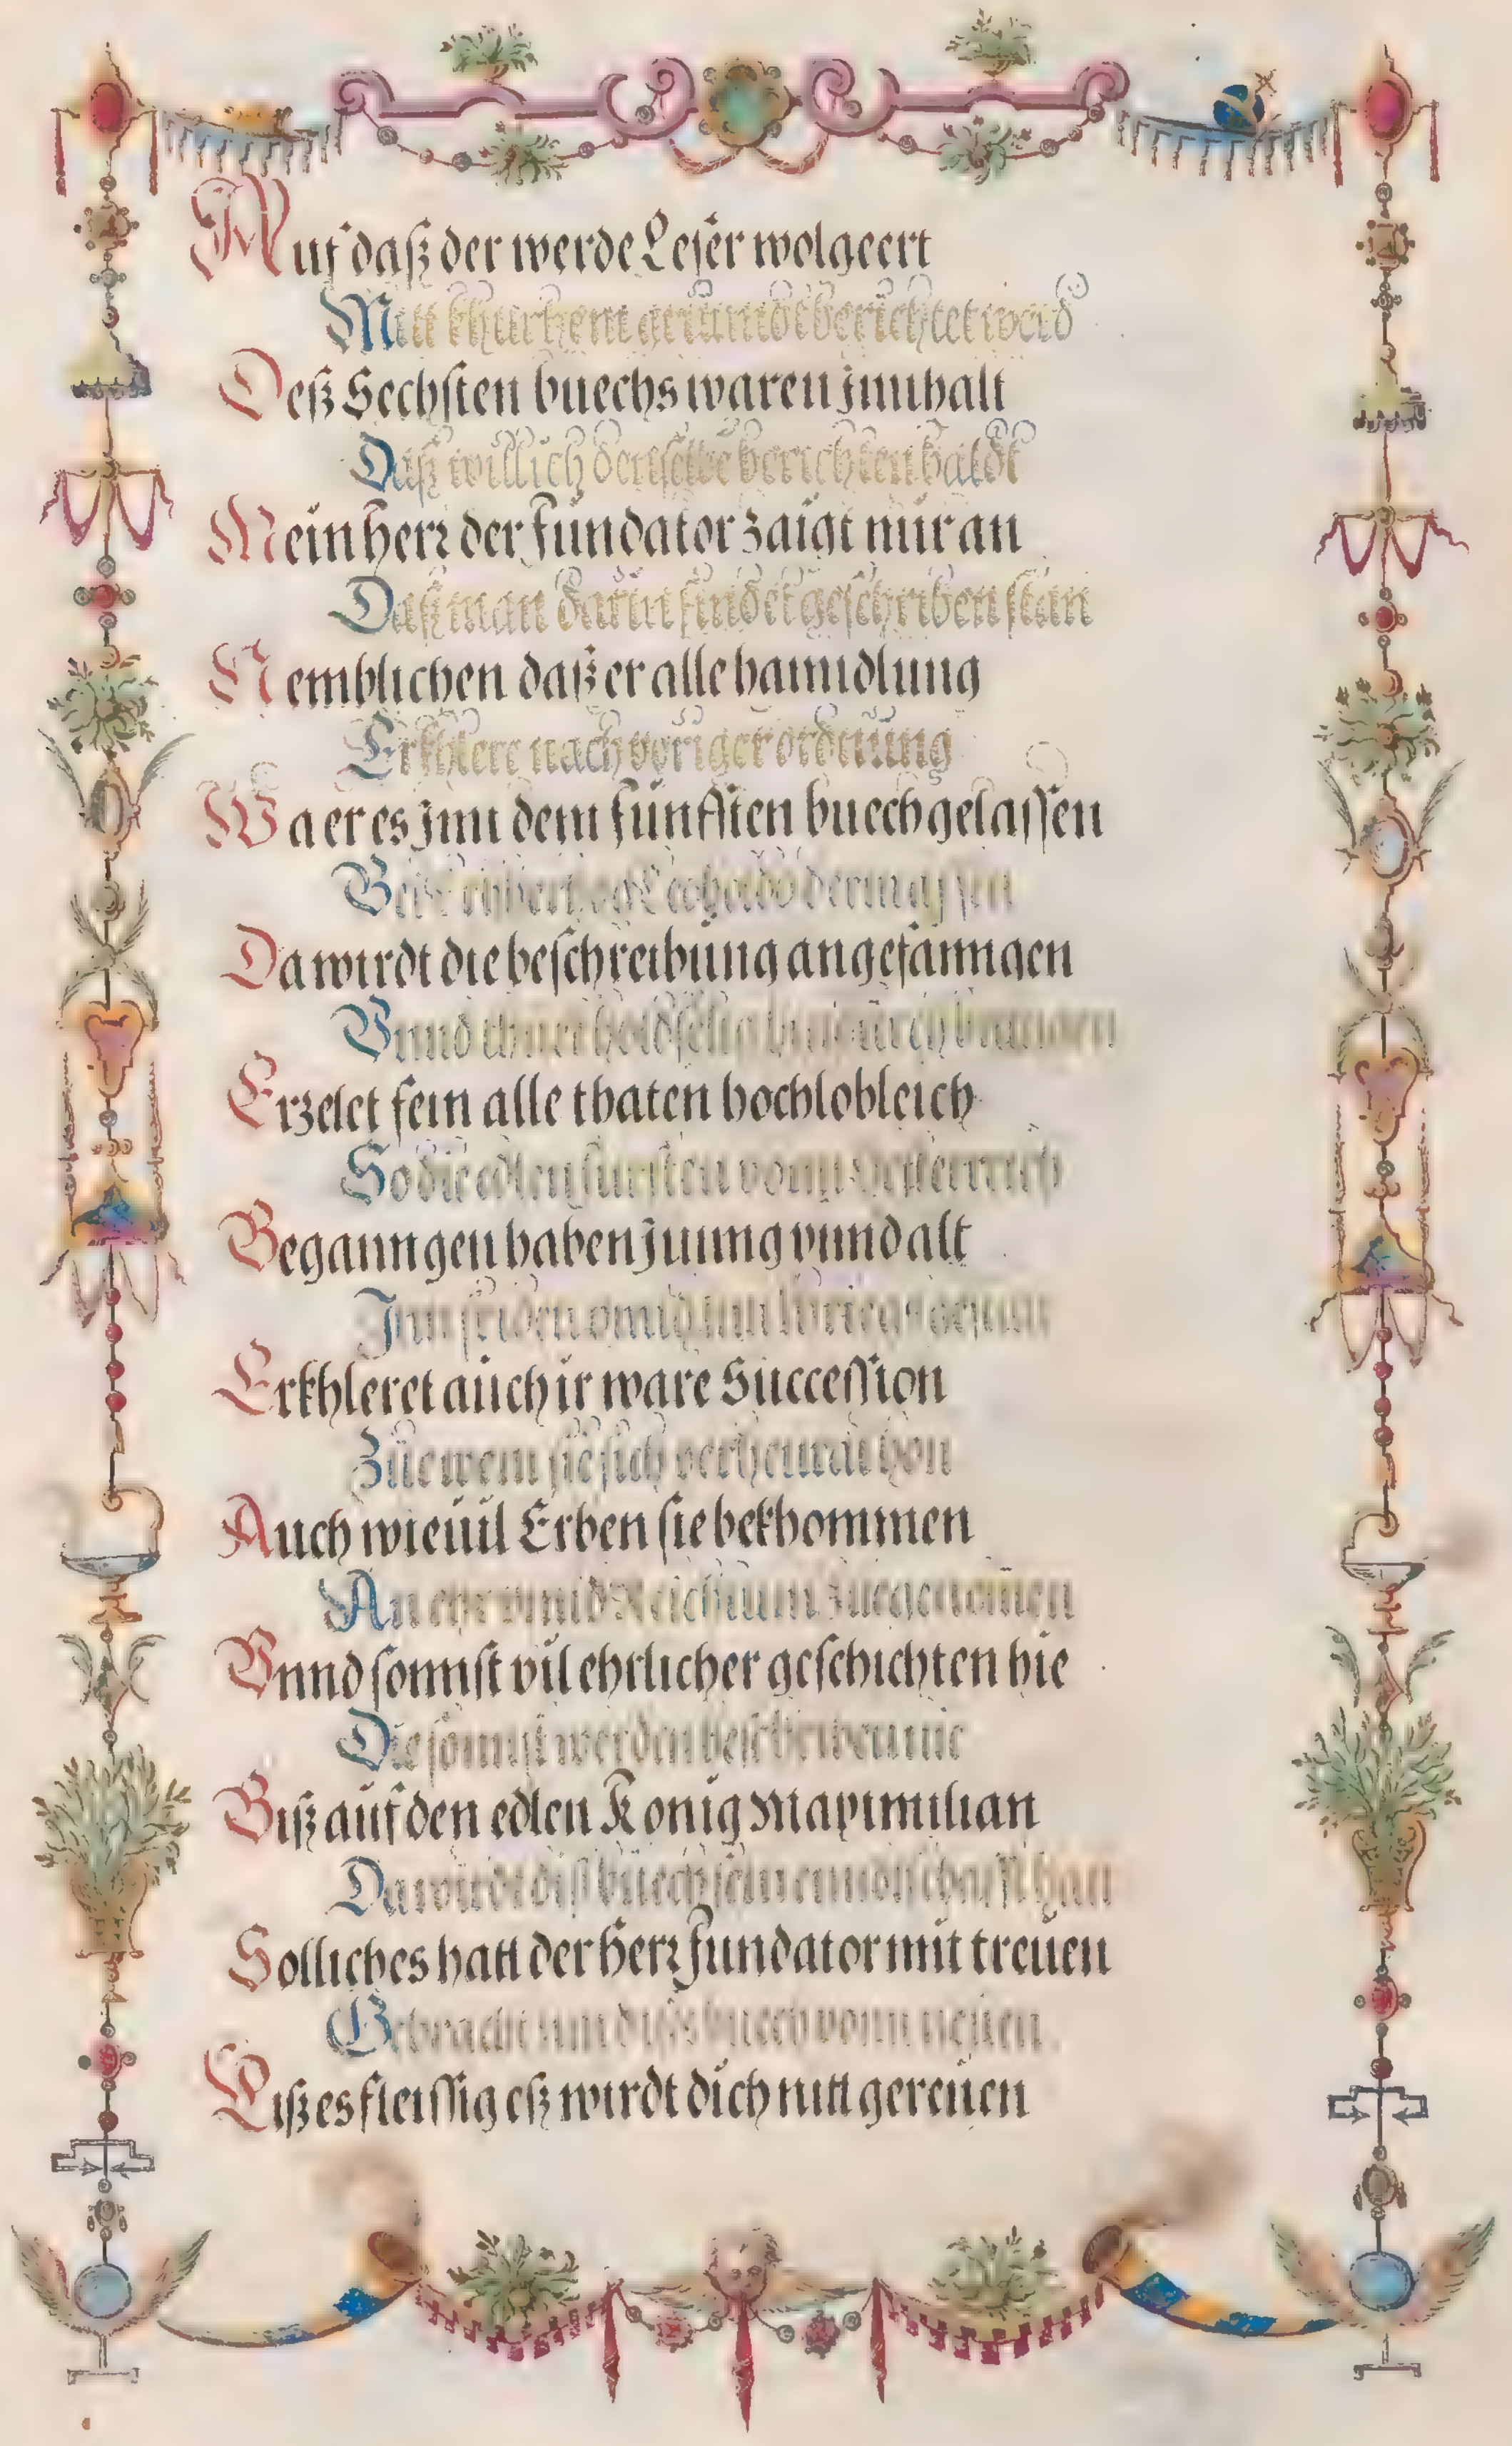 Auf daß der werde Leser wolgeert
Mitt khurtzem grünndt berichtet werd
Deß Sechsten buechs waren jnnhalt
Daß will ich denselbe berichten baldt
Mein herr der fundator zaigt mir an
Daß man darin findet geschriben stan
Nemblichen daß er alle hanndlung
Erkhlere nach voriger ordnüng
Wa er es jnn dem fünfften buech gelassen
Bei dermassen
Da wirdt die beschreibung angefanngen
Vnnd thuet holdselig
Erzelet fein alle thaten hochlobleich
So die edlen fursten vonn Oesterreich
Beganngen haben jung vnnd alt
Jnn friden vnnd jnn khriegs
Erkhleret auch ir ware Succession
Züe wem sie sich verheurat hon
Auch wieuil Erben sie bekhommen
An ehr vnnd Reichtum züegenomen
Vnnd sonnst vil ehrlicher geschichten hie
Die sonnst werden beschriben nie
Biß auf den edlen Konig Maximilian
Da wirdt diß büech sein enndtschafft han
Solliches hatt der herr fundator mit treuen
Gebracht inn diss buech vonn neuen.
Liß es fleissig eß wirdt dich nitt gereuen